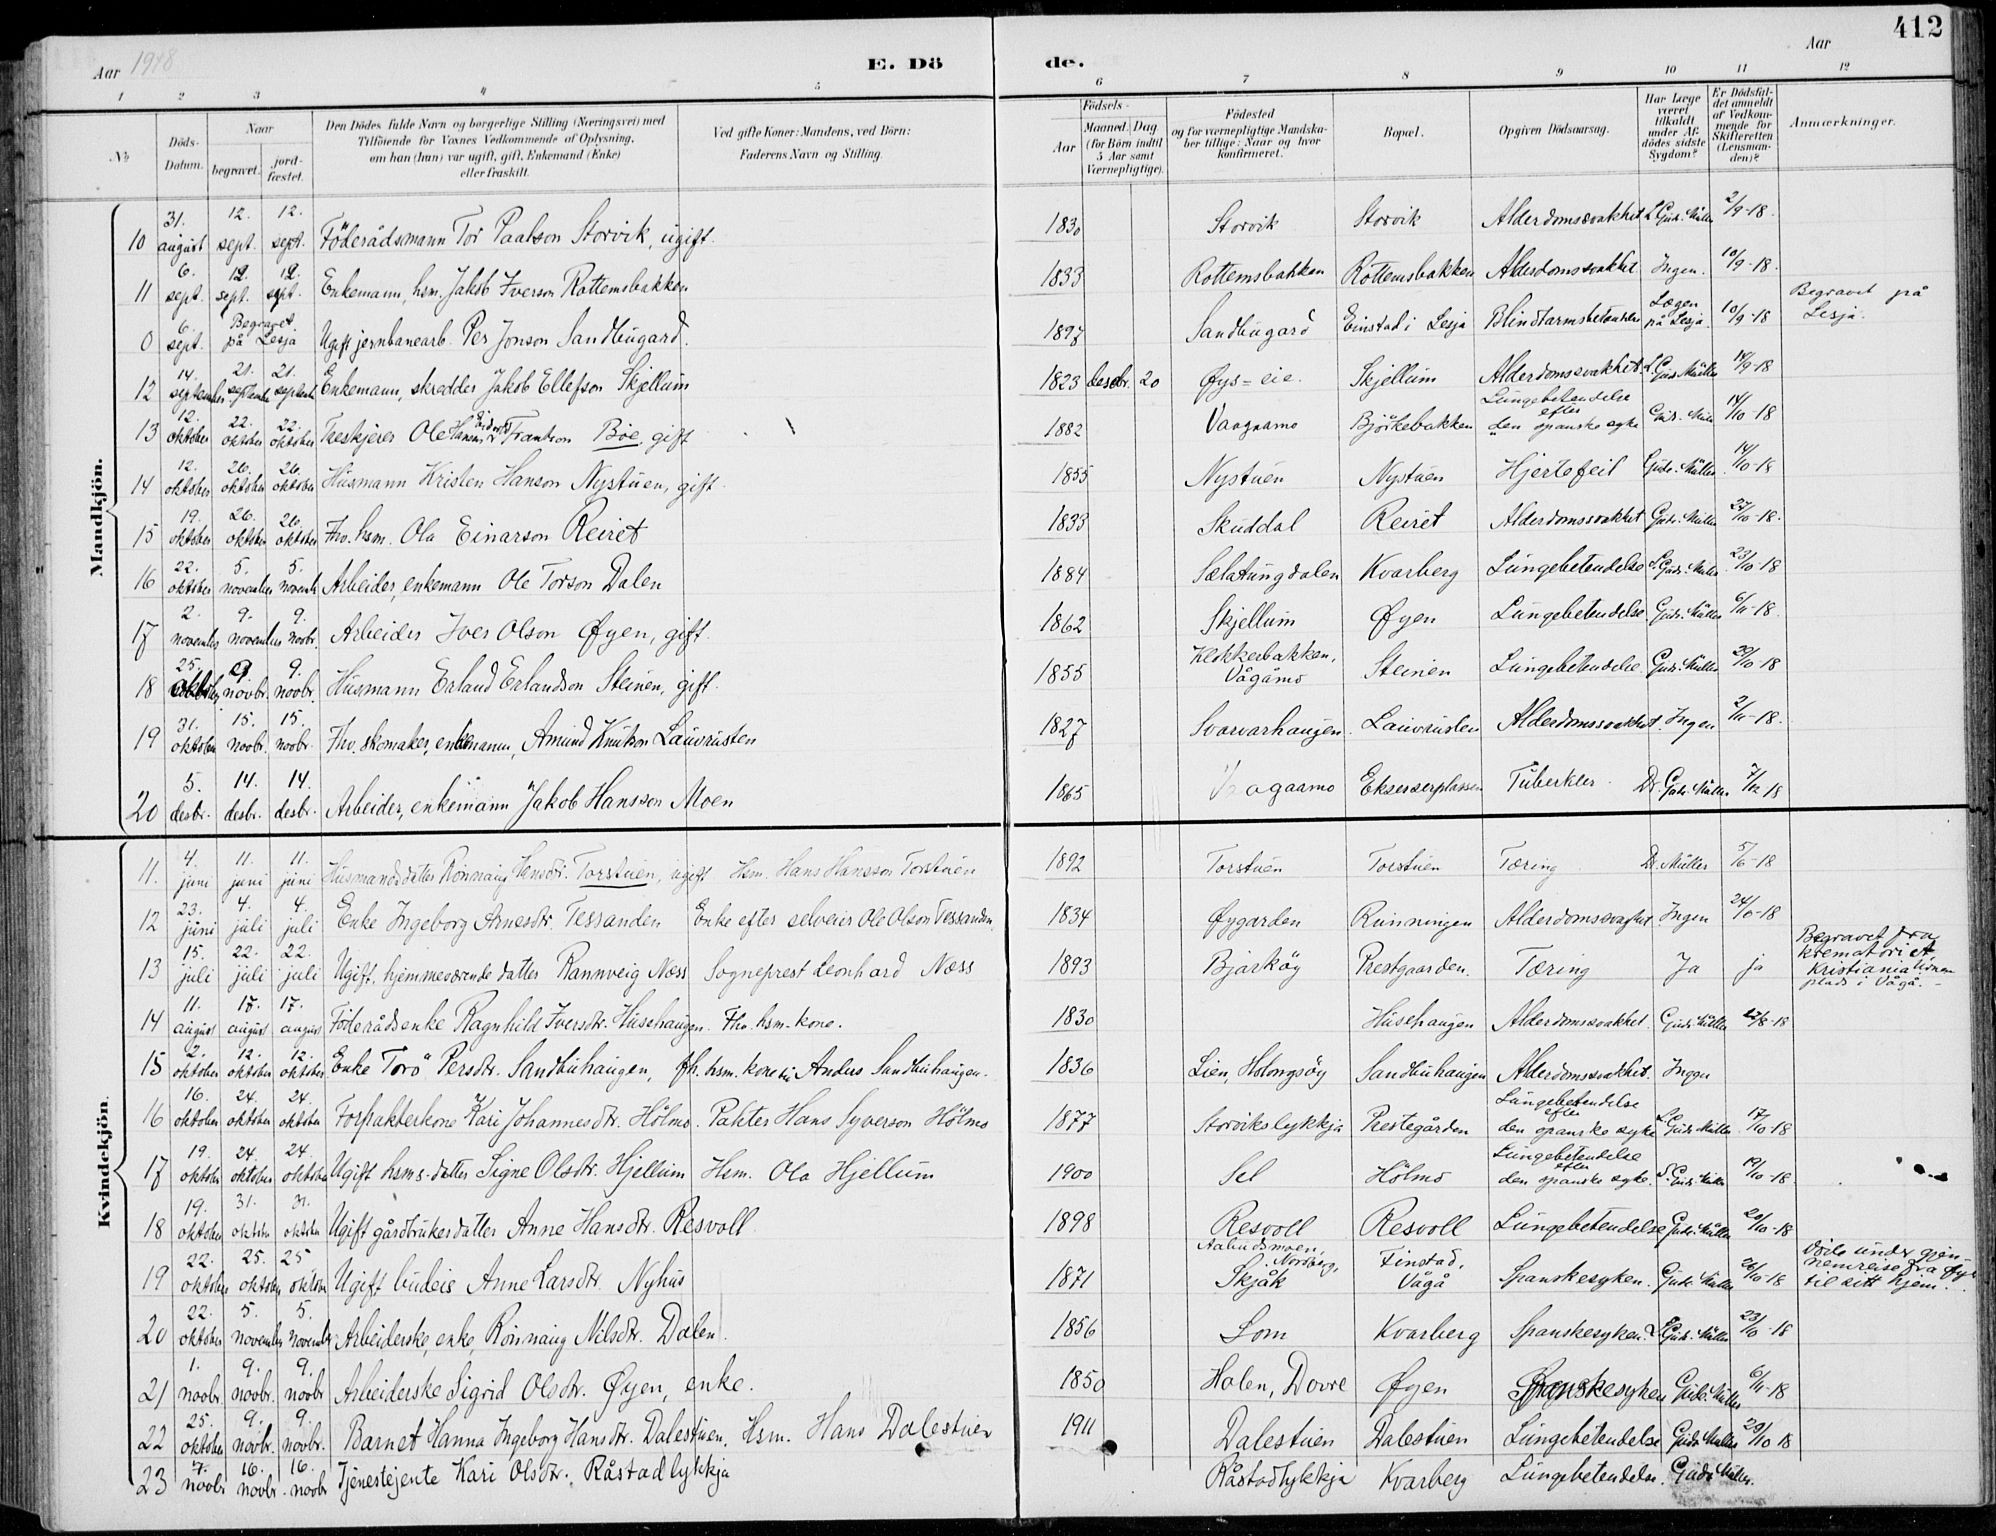 412
Aar 1918
E. Dö de.
Aar
1 2 3 4 5 6 7 8 9 10 11 12
No
Döds-Datum.
Naar
begravet.
jord-fæstet.
Den Dödes fulde Navn og borgerlige Stilling (Næringsvei) med
Tilföiende for Voxnes Vedkommende af Oplysning,
om han (hun) var ugift, gift, Enkemand (Enke)
eller fraskilt.
Ved gifte Koner: Mandens, ved Börn:
Faderens Navn og Stilling.
Födsels-
Aar
Maaned. Dag
(for Börn indtil
5 Aar samt
Værnepligtige).
Födested
og for værnepligtige Mandska-
ber tillige: Naar og hvor
konfirmeret.
Bopæl.
Opgiven Dödsaarsag.
Har Læge
været
tilkaldt
under Af-
dödes sidste
Sygdom?
Er Dödsfal-
det anmeldt
af Vedkom-
mende for
Skifteretten
(Lensman-
den)?
Anmærkninger.
Mandkjön.
10 31. august 12. sept. 12. sept. Föderådsmann Tor Paalson Storvik, ugift. 1830 Storvik Storvik Alderdomssvakhet L. Gudr. Müller 2/9-18.
11 6. sept. 12. sept. 12. sept. Enkemann, hsm. Jakob Iverson Rottemsbakken 1833 Rottemsbakken Rottemsbakken Alderdomssvakhet Ingen. 10/9-18.
0 6. sept. Begravet på Lesja Ugift jernbanearb. Per Jonson Sandbugard. 1897 Sandbugard Einstad i Lesja Blindtarmsbetændelse Lægen på Lesja. 10/9-18 Begravet på Lesja.
12 14. september 21. september 21. september Enkemann, skredder Jakob Ellefson Skjellum 1823 desbr. 20 Øys=eie. Skjellum Alderdomssvakhet. L. Gudr. Müller 14/9-18
13 12. oktober 22. oktober 22. oktober Treskjerer Ole Frantson Böe, gift 1882 Vaagaamo Bjørkebakken Lungebetendelse efter den spanske syke Gudr. Müller 14/10-18
14 12. oktober 26. oktober 26. oktober Husmann Kristen Hanson Nystuen, gift. 1855 Nystuen Nystuen Hjertefeil Gudr. Müller. 14/10-18
15 19. oktober 26. oktober 26. oktober Fhv. hsm. Ola Einarson Reiret 1833 Skuddal Reiret Alderdomssvakhet Gudr. Müller 22/10-18.
16 22. oktober 5. november 5. novembr Arbeider, enkemann Ole Torson Dalen 1884 Sælatungdalen Kvarberg Lungebetendelse L. Gudr. Müller 23/10-18
17 2. november 9. november 9. novbr. Arbeider Iver Olson Øyen, gift. 1862 Skjellum Øyen Lungebetendelse. Gudr. Müller 6/11-18.
18 25. oktober 9. novbr. 9. novbr. Husmann Erland Erlandson Steinen, gift. 1855 Klokkerbakken, Vågåmo Steinen Lungebetendelse Gudr. Müller 29/10-18
19 31. oktober 15. novbr. 15. novbr. Fhv. skomaker, enkemann, Amund Knutson Lauvrusten 1827 Svarvarhaugen Lauvrusten Alderdomssvakhet. Ingen 2/11-18.
20 5. desbr. 14. desbr. 14. desbr. Arbeider, enkemann Jakob Hansson Moen 1865 Vaagaamo Ekserserplassen Tuberkler. Dr. Gudr. Müller 7/12 18
Kvindekjön.
11. 4. juni 11. juni 11. juni Husmandsdatter Rönnaug Hansdr. Torstuen, ugift Hsm. Hans Hansson Torstuen 1892 Torstuen Torstuen Tæring Dr. Müller 5/6-18
12 23. juni 4. juli 4. juli Enke Ingeborg Arnesdtr. Tessanden Enke efter selveier Ole Olson Tessanden 1834 Øygarden Runningen Alderdomssvakhet. Ingen 24/6-18
13 15. juli 22. juli 22. juli Ugift, hjemmeværende datter Rannveig Næss Sogneprest Leonhard Næss 1893 Bjarköy Prestgaarden. Tæring Ja ja Begravet fra krematoriet, Kristiania plads i Vågå.
14 11. august 17. august 17. august Föderådsenke Ragnhild Iversdtr. Husehaugen. Fhv. hsm. kone. 1830 Husehaugen Alderdomssvakhet. Gudr. Müller 12/8-18
15 2. oktober 12. oktober 12. oktober Enke Torö Persdtr. Sandbuhaugen, fh. hsm. kone til Anders Sandbuhaugen. 1836 Lien, Holongsöy Sandbuhaugen Alderdomssvakhet. Ingen
16 16. oktober 24. oktober 24. oktober Forpakterkone Kari Johannesdtr. Hölmo. Pakter Hans Syverson Hölmo 1877 Storvikslykkja Prestegården Lungebetendelse efter den spanske syke L. Gudr. Müller 17/10-18
17 19. oktober 24. oktober 24. oktober Ugift hsms-datter Signe Olsdtr. Hjellum Hsm. Ola Hjellum 1900 Sel Hölmo Lungebetendelse efter den spanske syke. Gudr. Müller 19/10-18.
18 19. oktober 31. oktober 31. oktober Ugift gårdbrukerdatter Anne Hansdtr. Resvoll. 1898 Resvoll Resvoll Lungebetendelse Gudr. Müller 20/10-18
19 22. oktober 25. oktober 25 oktober Ugift budeie Anne Larsdtr. Nyhus 1871 Nordberg, Skjåk Finstad, Vågå Spanskesyken. Gudr. Müller 26/10-18 Döde under gjennemreise fra til sitt hjem.
20 22. oktober 5. november 5. novembr Arbeiderske, enke, Rönnaug Nilsdtr. Dalen. 1856 Lom Kvarberg Spanskesyken. L. Gudr. Müller 23/10-18
21 1. novbr. 9. novbr. 9. novbr Arbeiderske Sigrid Olsdtr. Øyen, enke. 1850 Holen, Dovre Øyen Spanskesyken Gudr. Müller 6/11-18
22 25. oktober 9. novbr. 9. novbr. Barnet Hanna Ingeborg Hansdtr. Dalestuen. Hsm. Hans Dalestuen 1911 Dalestuen Dalestuen Lungebetendelse Gudr. Müller 29/10 18
23 7. novbr 16. novbr. 16. novbr Tjenestejente Kari Olsdtr. Råstadlykkja Råstadlykkja Kvarberg Lungebetendelse. Gudr. Müller.